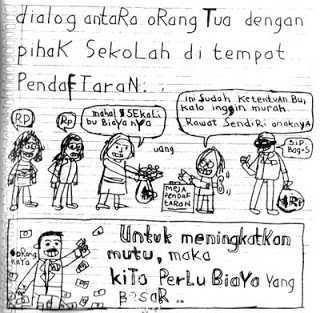 dialog antaRa oRang Tua dengan
pihak SekoLah di tempat
PendafTaraN. :
RP
RP
mahal SEKaLi
bu Biaya nya
uang
ini Sudah KetentuAn Bu,
kalo inggin murah.
Rawat SendiRi anaknyA
SIP
Bag-S
MEJA
PENDAF
TARAN
RP
ORang
KAYA
Untuk meningkatkan
mutu, maka
kiTa PerLu Biaya Yang
BeSaR ..